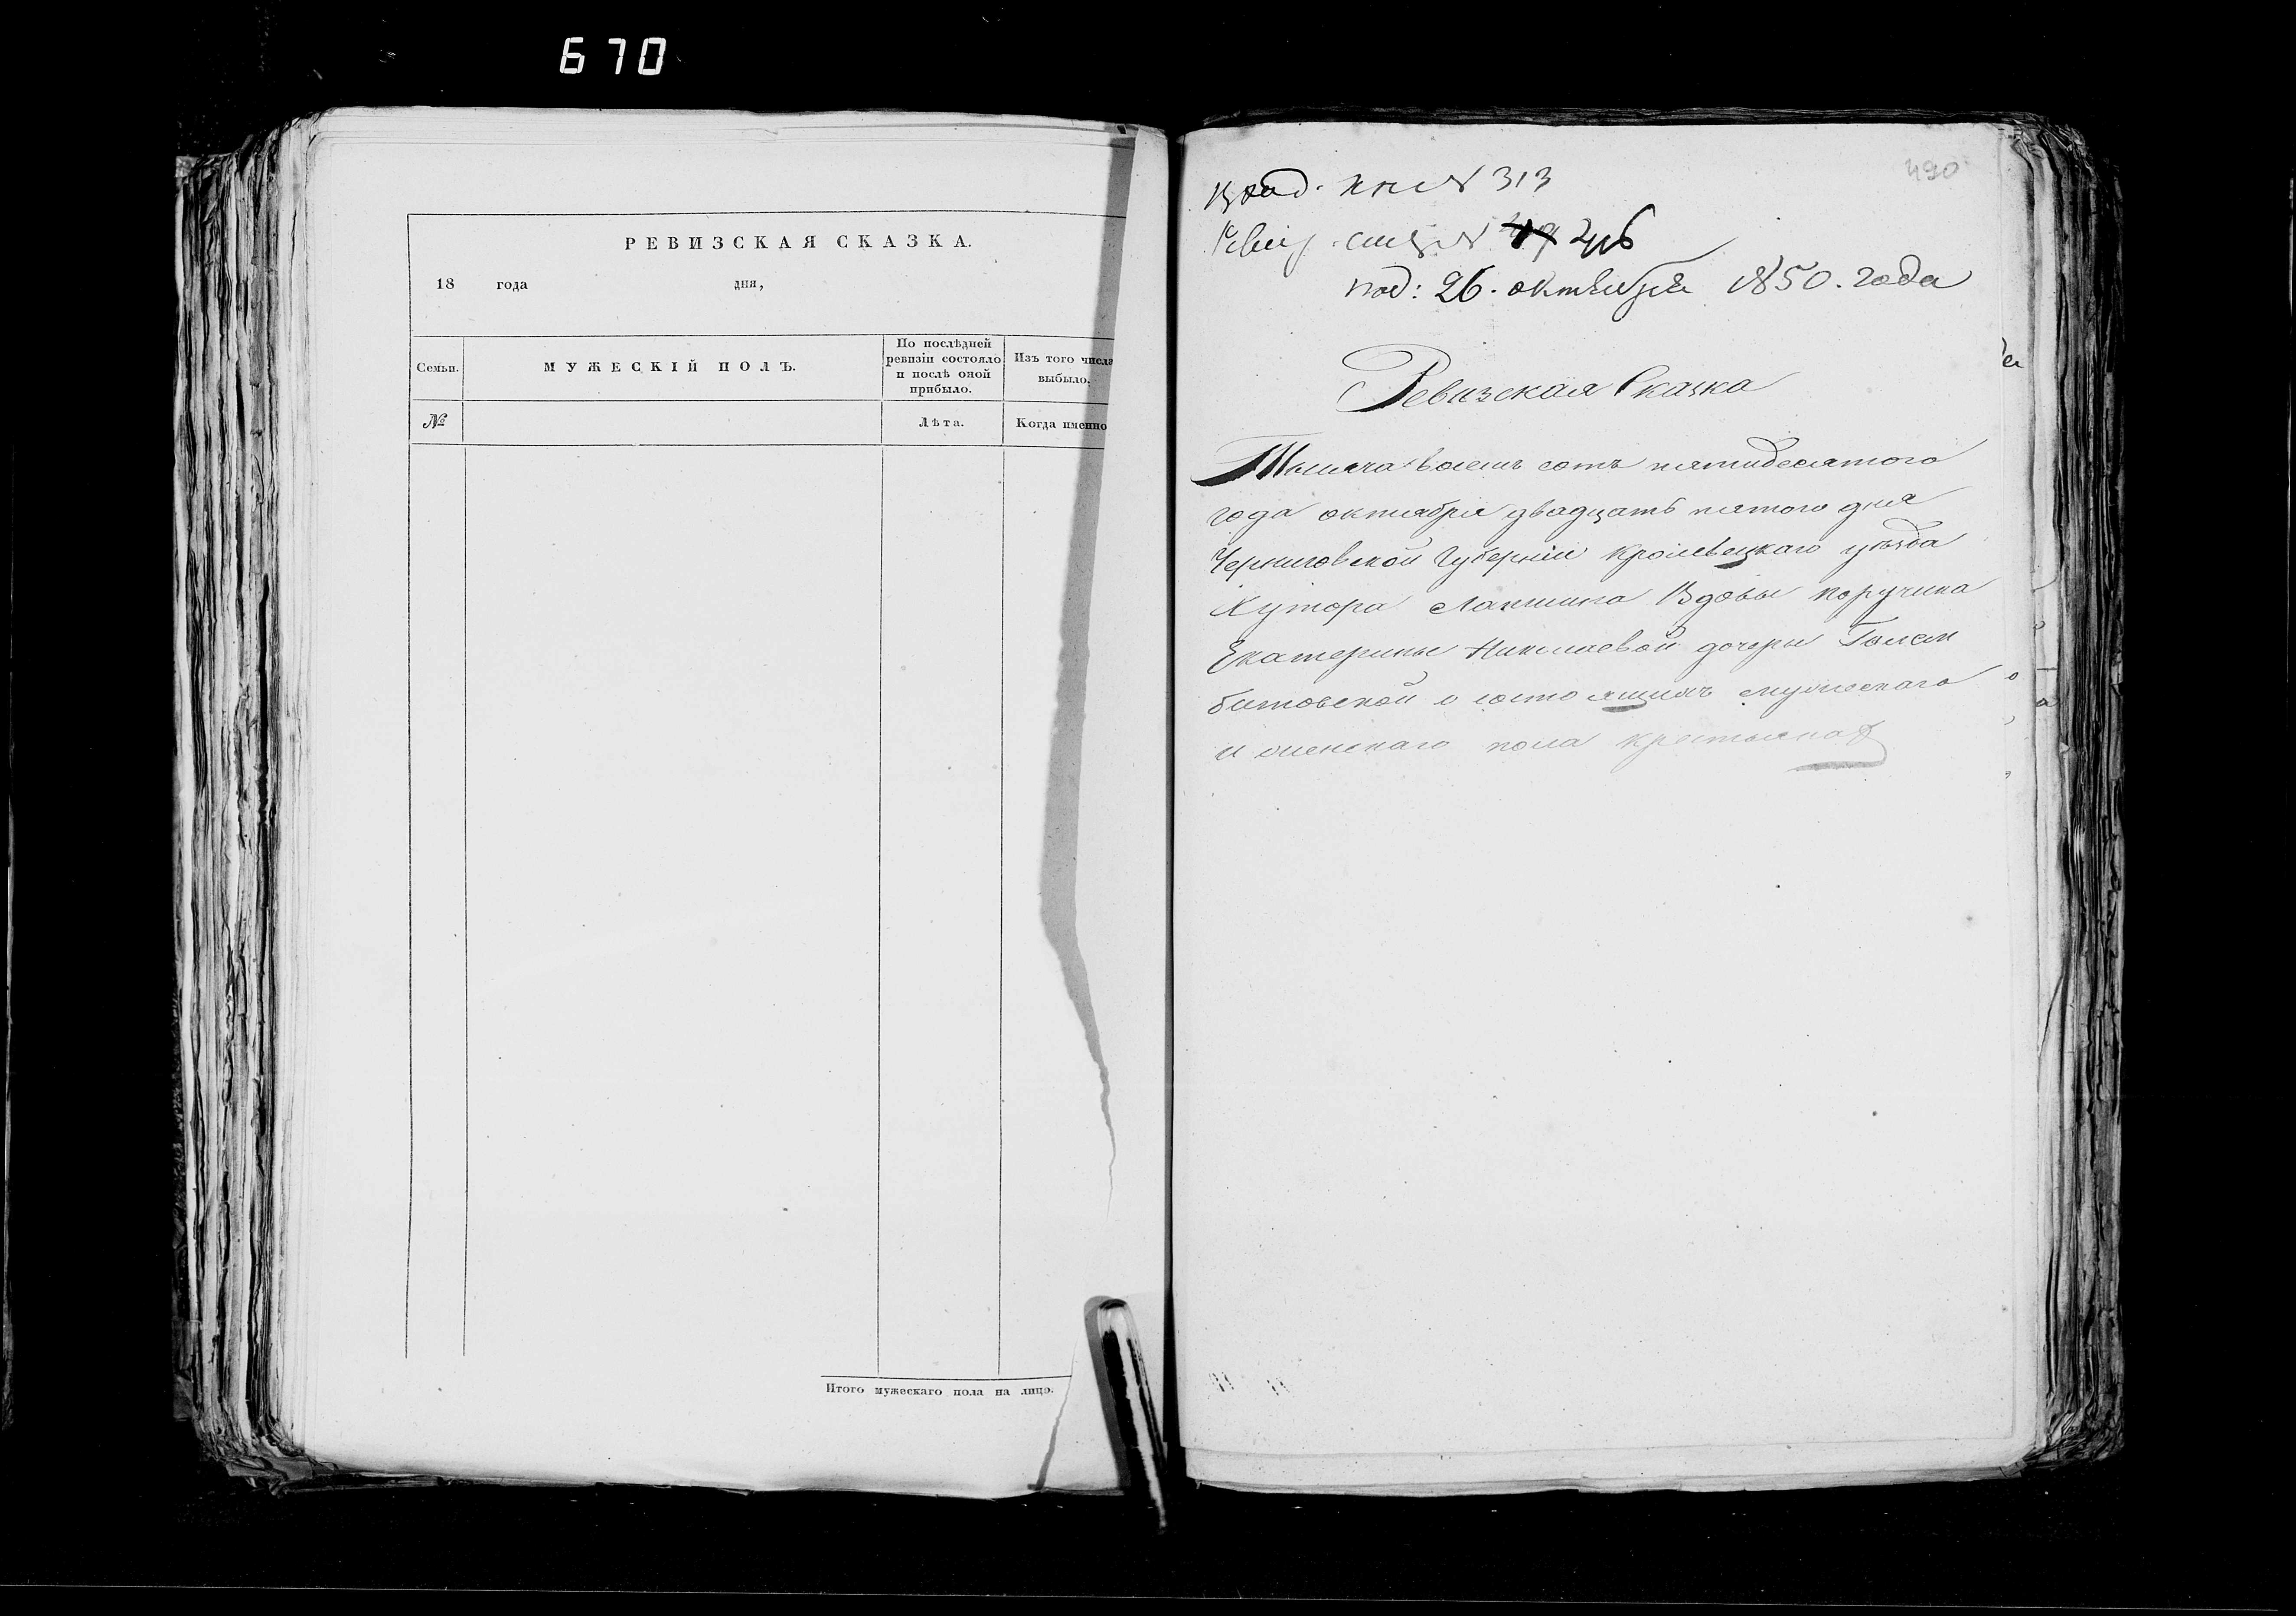 670
РЕВИЗСКАЯ СКАЗКА.
18 года дня,
Семьи.
МУЖЕСКІЙ ПОЛЪ.
По послѣдней ревизіи состояло и послѣ оной прибыло.
Изъ того числа выбыло.
№
Лѣта.
Когда именно
Итого мужескаго пола на лицо.
490
вход. кн № 313
Ревиз. № 246
под: 26. октября 1850. года
Ревизская Сказка
Тысяча восемь сотъ пятидесятого
года октября двадцать пятого дня
Черниговской Губерніи Кролевецкаго уѣзда
Хутора Вдовы поручика
Екатерины Николаевой дочери Голем
битовской о состоящихъ мужескаго
и женскаго пола крестьянах